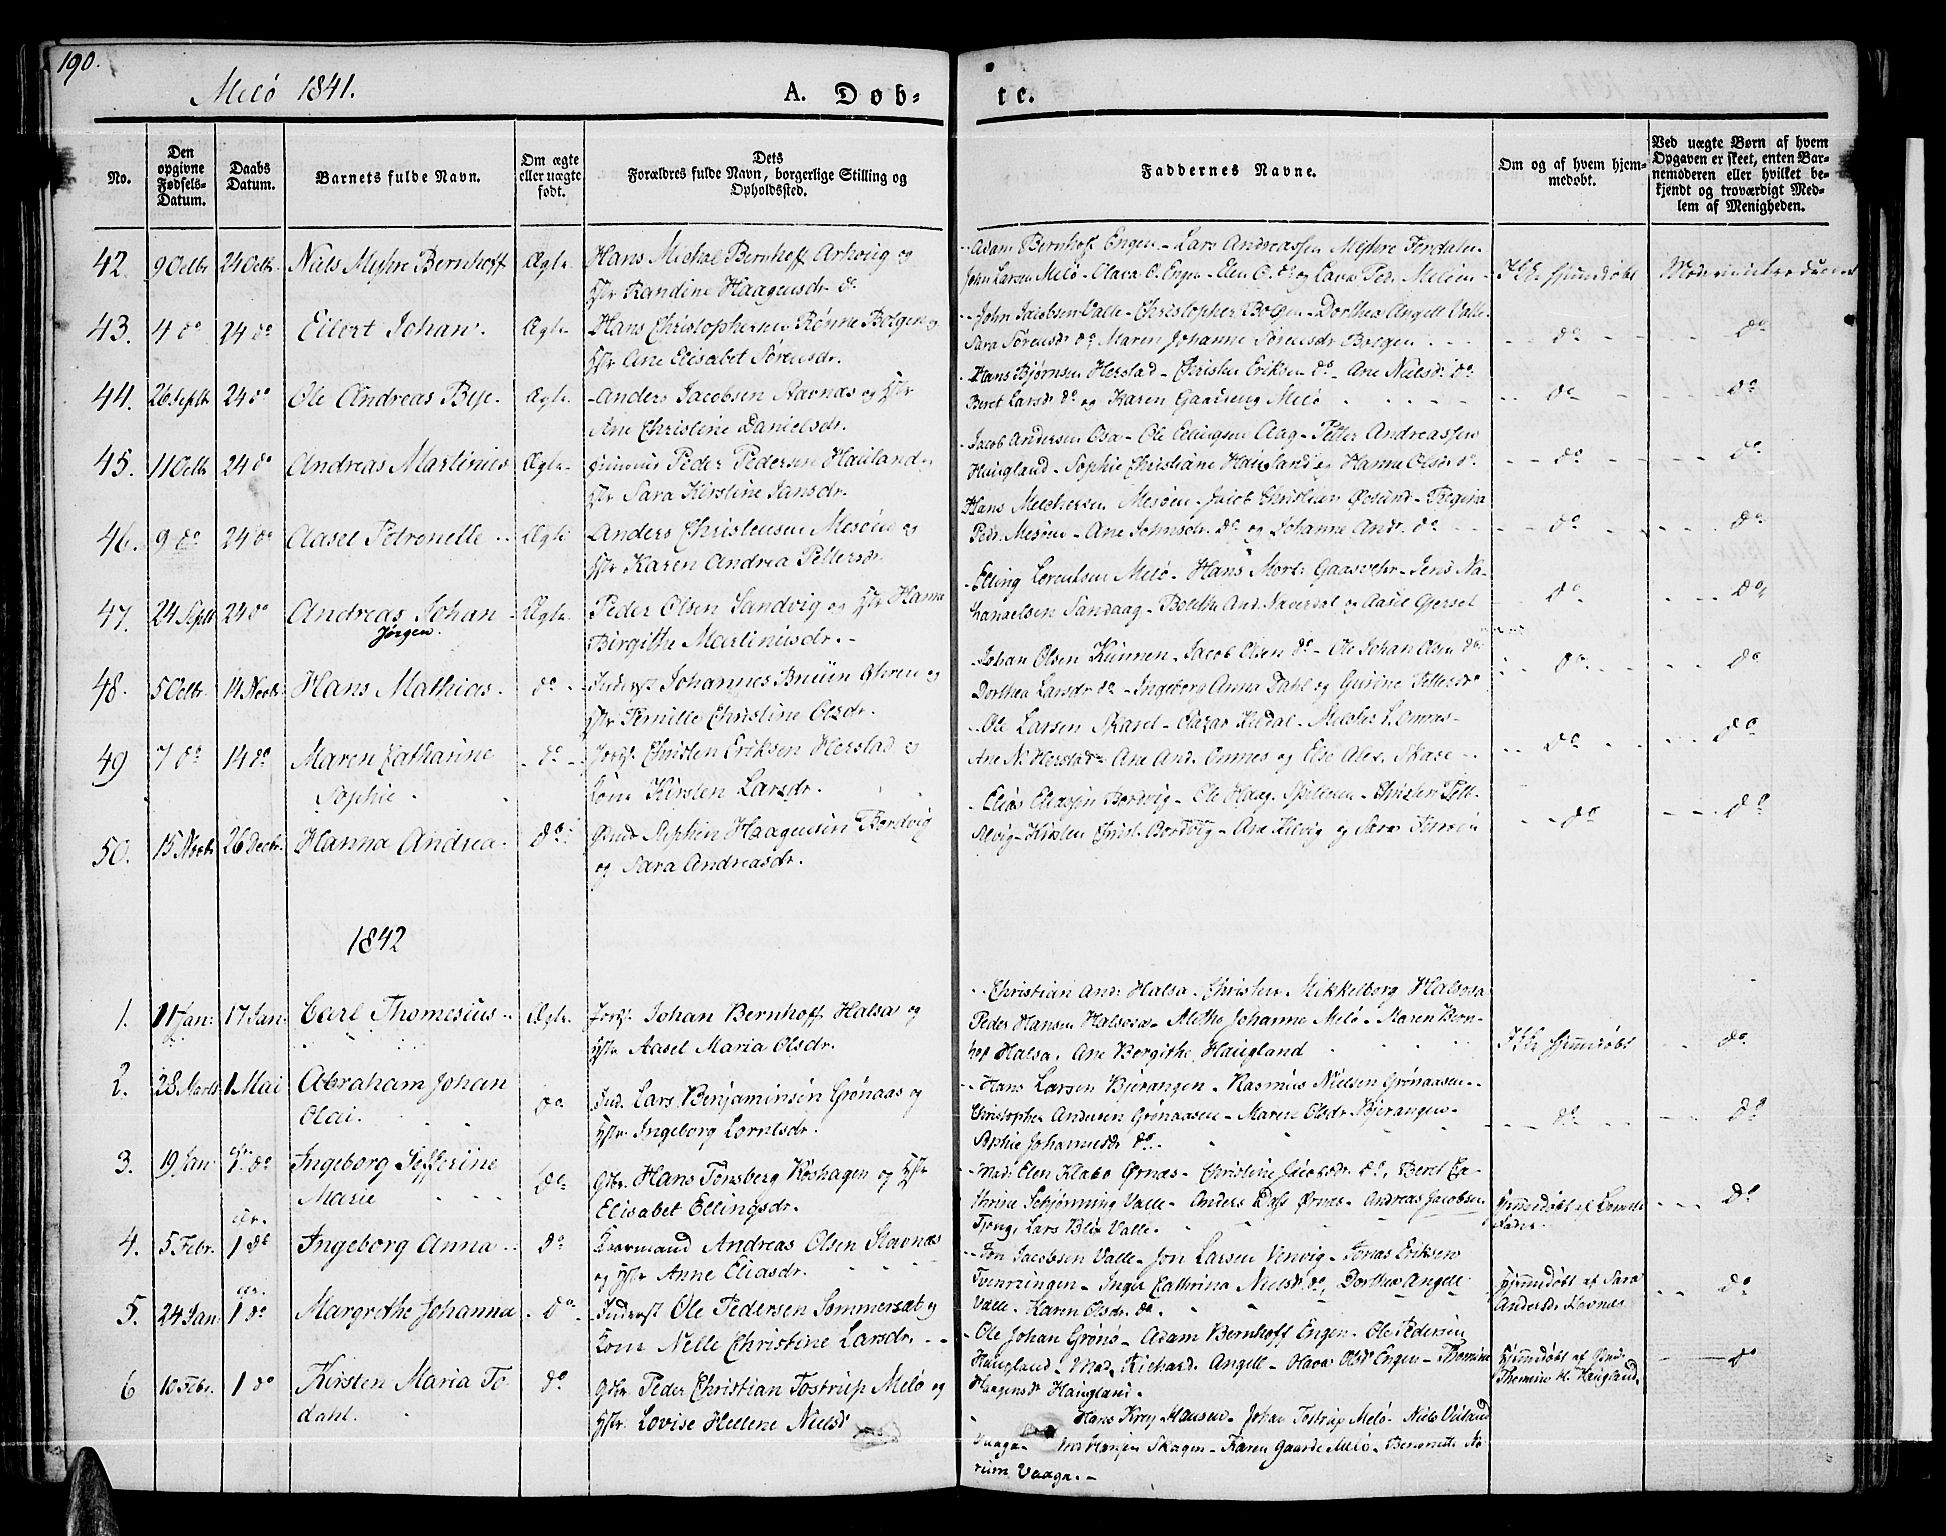 190.
Melö 1841.
A. Døb-
te.
No.
Den opgivne Fødsels-Datum.
Daabs Datum.
Barnets fulde Navn.
Om ægte eller uægte født.
Dets Forældres fulde Navn, borgerlige Stilling og Opholdssted.
Faddernes Navne.
Om og af hvem hjem-medøbt.
Ved uægte Børn af hvem Opgaven er skeet, enten Bar-nemoderen eller hvilket be-kjendt og troværdigt Med-lem af Menigheden.
42. 9 Octbr 24 Octb. Niels Myhre Bernhoff Ægte Hans Michal Bernhoff Arhoug og
Hstr Randine Haagensdr do
Adam Bernhof Engen - Lars Andreassen Myhre Fondalen
John Larsen Melö - Olava O. Engen - Elen O. do og Lava Ped. Melöen
Ikke hjemdøbt
43. 4 do 24 do Eilert Johan. Ægte Hans Christophersen Rönne Bolgen og
Hstr Ane Elisabet Sörensdr.
John Jacobsen Valle - Christopher Bolgen - Dorthea Angell Valle
Sara Sörensdr do, Maren Johanne Sörensdr Bolgen
do do
44. 26 Septb 24 do Ole Andreas Bye. Ægte Anders Jacobsen Stavnæs og Hstr
Ane Christine Danielsdr.
Hans Björnsen Herstad - Christen Eriksen do - Ane Nielsdr do
Beret Larsdr do og Karen Gaarseng Melö
do do
45. 11 Octb 24 do Andreas Martinus Ægte Peder Pedersen Hauland
Hstr Sara Kirstine Jansdr.
Jacob Andersen Osa - Ole Ellingsen Aag - Petter Andreassen
Haugland - Sophie Christiane Haugland og Hanna Olsdr do
do do
46. 9 do 24 do Aasel Petronelle Ægte Anders Christensen Mesöen og
Hstr Karen Andrea Pettersdr
Hans Melchersen Mesöen - Jacob Christian Øvsund - Regina
Pedr. Mesöen - Ane Johnsdr. do og Johanna Andr. do
do do
47. 24 Septb 24 do Andreas Johan Ægte Peder Olsen Sandvig og Hstr Hanna
Jörgen.
Birgitte Martinusdr.
Elling Lorentsen Melö - Hans Mort. Gaasvær - Jens Na-
thanaelsen Sandaag - Bolette And. Saverdal og Aasel Gjersel
do do
48. 5 Octbr. 14 Novbr Hans Mathias. do Inderst Johannes Bruun Ghren og
Hstr Pernille Christine Olsdr.
Johan Olsen Kunnen - Jacob Olsen do - Ole Johan Olsen do
Dorthea Larsdr do - Ingeborg Anna Dahl og Gurine Pettersdr
do do
49 7 do 14 do Maren Catharine do Christen Eriksen Herstad og
Sophie.
Kone Kirsten Larsdr.
Ole Larsen Skarel - Lazar Kildal - Nicolai L. Omnes
Ane N. Herstad - Ane And. Omnes og Else Alex. Skare
do do
50. 15 Novbr 26 Decbr. Hanna Andrea. do Gmd Stephen Haagensen Bordvig
og Sara Andreasdr.
Elias Eliasen Bordvig - Ole Haag. Spilleren - Christen Pett.
Alvig - Kirsten Christ. Bordvig - Ane Kilvig og Sara
do do
1842
1. 11 Jan: 17 Jan: Carl Thomesius Ægte Johan Bernhoff Halsa og
Hstr Aasel Maria Olsdr.
Christian And. Halsa - Christen Mikkelborg Halsosa
Peder Hansen Halsosa - Alethe Johanne Melö - Maren Bern-
hof Halsa. Ane Bergithe Haugland
Ikke hjemdøbt do
2. 28 Marts 1 Mai Abraham Johan
Olai.
do Ind. Lars Benjaminsen Grönaas og
Hstr. Ingeborg Lorntsdr.
Hans Larsen Bjerangen - Rasmus Nielsen Grönaasen
Christopher Andersen Grönaasen - Maren Olsdr Bjerangen
Sophie Johannesdr do.
do do
3. 19 Jan 1 do Ingeborg Sefferine
Marie
do Gbr. Hans Tonsberg Koshagen og Hstr
Elisabet Ellingsdr.
Mad. Elen Klabo Ørnæs - Christine Jacobsdr. do, Beret Ca-
thrine Schjönning Valle - Anders Dass Ørnes - Andreas Jacobsen
Tjong, Lars Blix Valle.
hjemmedøbt af
Fader.
do
4. 5 Febr. 1 do Ingeborg Anna do Andreas Olsen Stavnæs
og Hstr Anne Eliasdr.
Jon Jacobsen Valle - Jon Larsen Venvig - Jonas Eriksen
Tvenvængen - Inger Cathrina Nielsdr do, Dorthea Angell
Valle - Karen Olsdr. do
hjemmedøbt af Sara
Andersdr Stavnes
do
5. 24 Jan 1 do Margrethe Johanna do Inderst Ole Pedersen Sommersæt og
Kone Nelle Christine Larsdr.
Ole Johan Grönö - Adam Bernhoff Engen - Ole Pedersen
Haugland - Mad. Richard Angell - Olava Olsdr Engen - Thomine
Haagensdr Haugland.
hjemmedøbt af
Thomine H. Haugland.
do
6 10 Febr. 1 do Kirsten Maria To-
dahl.
do Gbr Peder Christian Tostrup Melö og
Hstr. Lovise Hellene Nielsd
Hans Kroy Hansen - Johan Tostrup Melö - Niels Veiland
Vaaga - Skagen - Karen Gaarde Melö - Berenette No-
rum Vaaga.